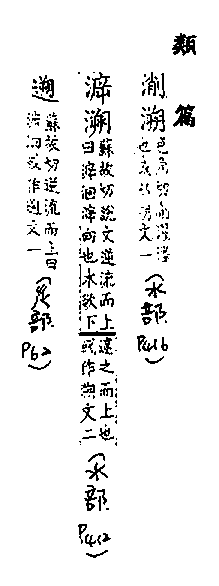 類篇
溯 色角切 文一 (水部 P416)
㴑溯 蘇故切說文逆流而上曰㴑洄㴑向也水欲下違之而上也或作溯文二 (水部 P412)
遡 蘇故切逆流而上曰㴑洄或作遡文一 (辵部 P62)